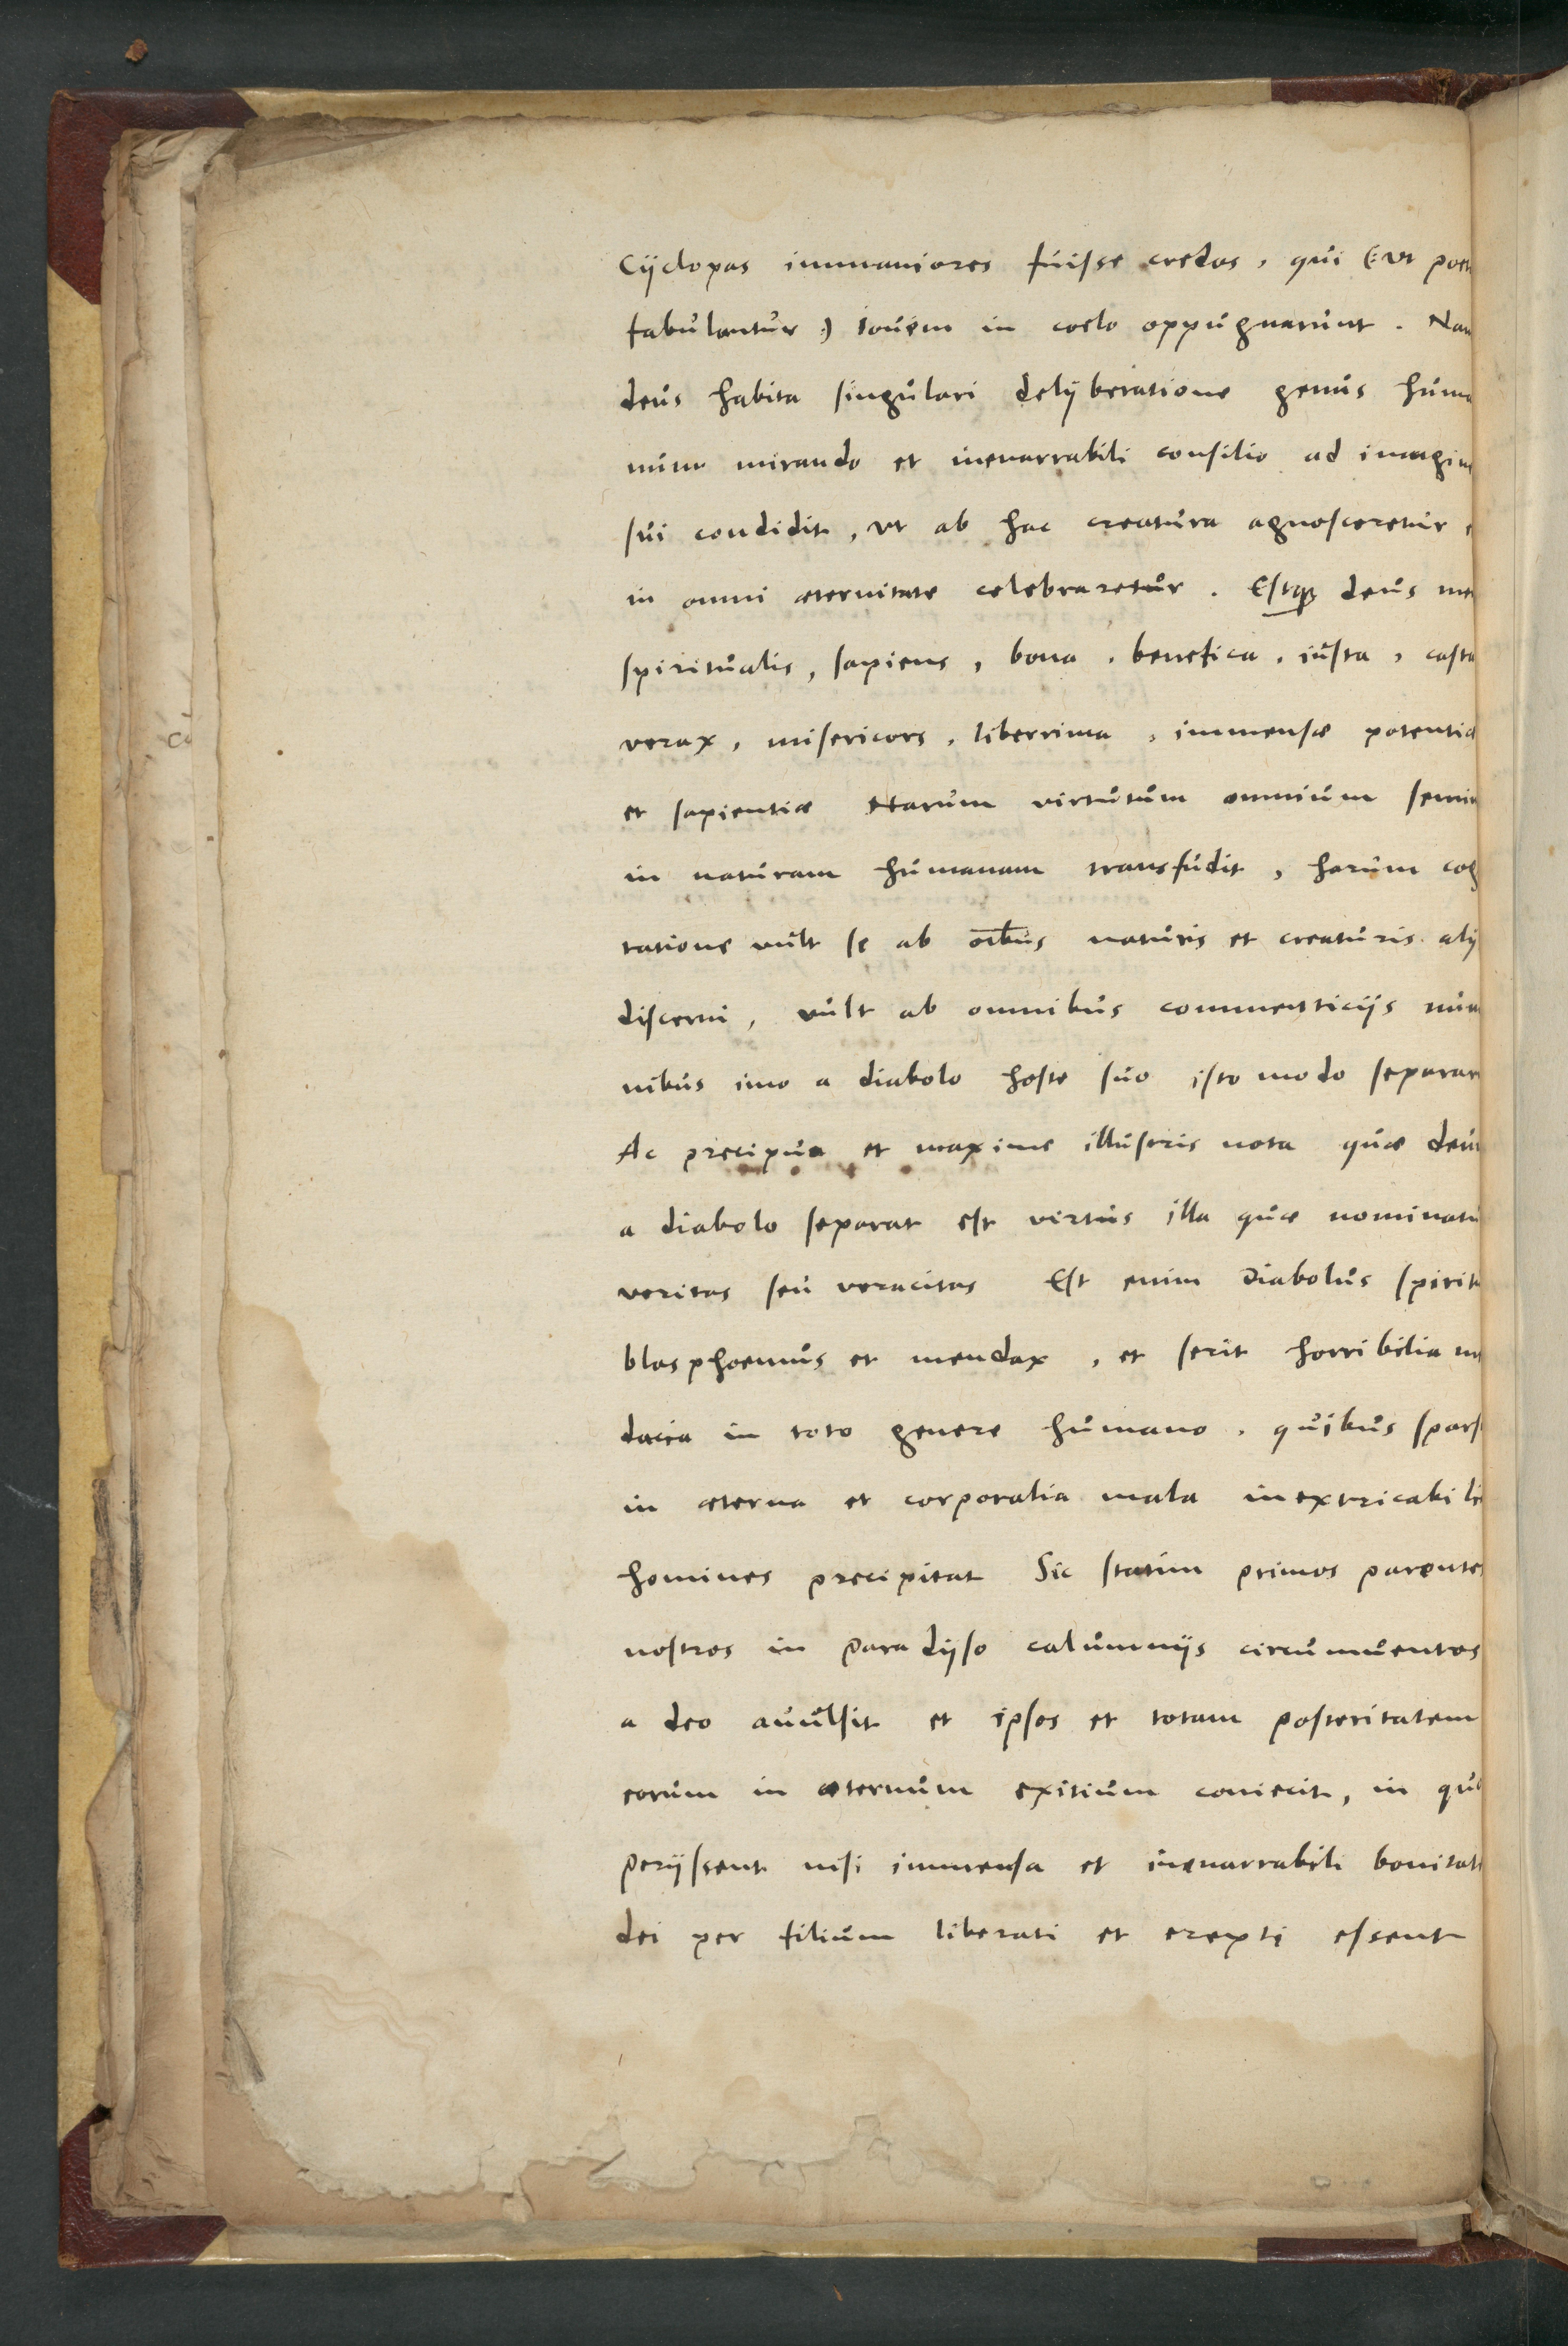 Cijclopas immaniores fuisse credas, qui (: vt poet
fabulantur :) Iouem in coelo oppugnarunt. Nam
deus habita singulari delijberatione genus huma
num mirando et inenarrabili consilio ad imagine
sui condidit, vt ab hac creatura agnosceretur e
in omni æternitate celebraretur. Estq3 deus men
spiritualis, sapiens, bona, benefica, iusta, casta
verax, misericors, liberrima, immensæ potentiæ
et sapientiæ harum virtutum omnium semin
in naturam humanam transfudit, harum cog
tatione vult se ab oībus naturis et creaturis alij
discerni, vult ab omnibus commenticijs num
nibus imo a diabolo hoste suo isto modo separar
Ac precipua et maxime illustris nota quæ deum
a diabolo separat est virtus illa quæ nominatu
veritas seu veracitas Est enim Diabolus spiritu
blasphoemus et mendax, et serit horribilia m
dacia in toto genere humano, quibus spars
in æterna et corporalia mala inextricabili
homines precipitat Sic statim primos parentes
nostros in paradijso calumnijs circumuentos
a deo auulsit et ipsos et totam posteritatem
eorum in æternum exitium coniecit, in quo
perijssent nisi immensa et inenarrabili bonitate
dei per filium liberati et erepti essent